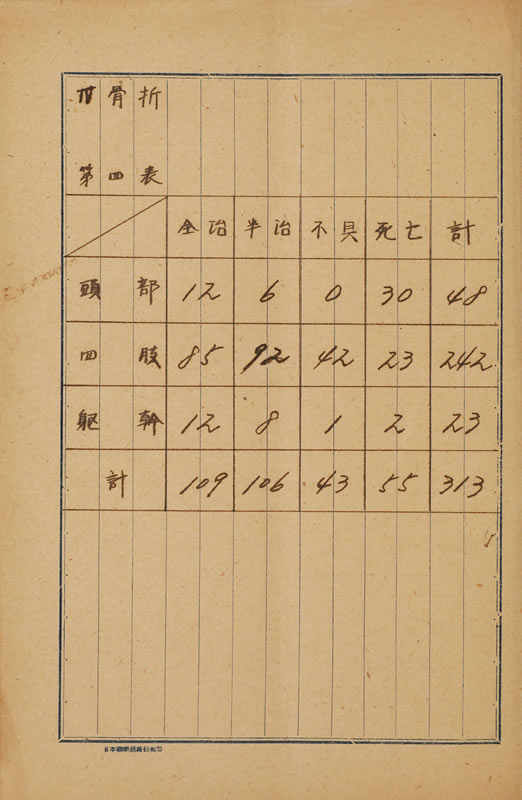 Ⅳ骨折
第四表
全治 半治 不具 死亡 計
頭部 12 6 0 30 48
四肢 85 92 42 23 242
躯幹 12 8 1 2 23
計 109 106 43 55 313
5